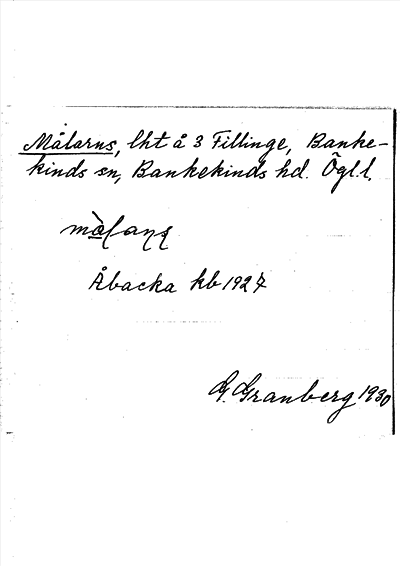 Målarns, lht å 3 Fillinge, Banke-
kinds sn, Bankekinds hd. Ögl.l.
Åbacka kb 1927
G. Granberg 1930